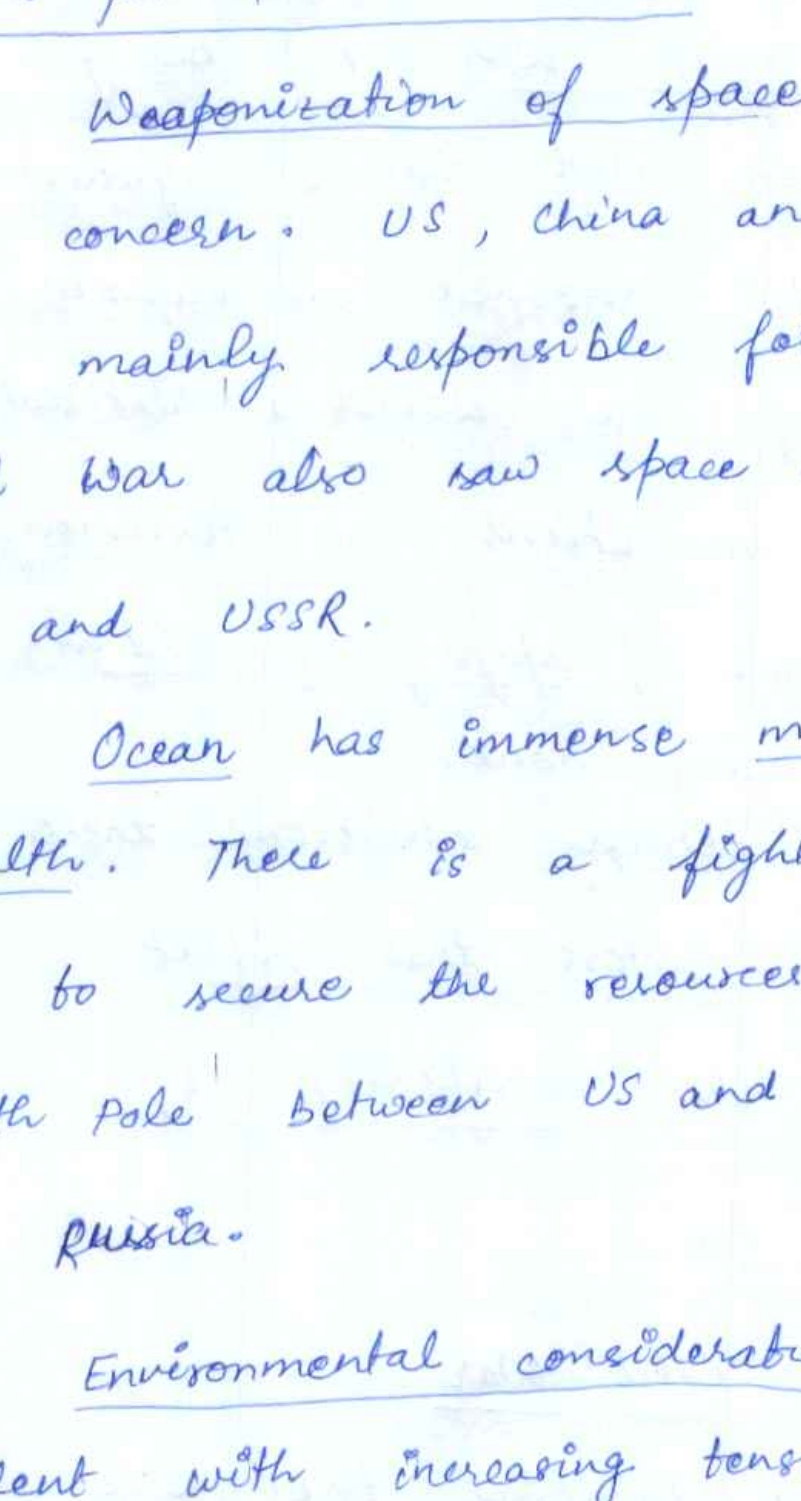 Weaponization of space
concern. US, China an
mainly responsible fo
War also saw space
and USSR.
Ocean has immense m
lth. There is a fight
to secure the resources
th Pole between US and
Russia.
Environmental considerati
ent with increasing tens